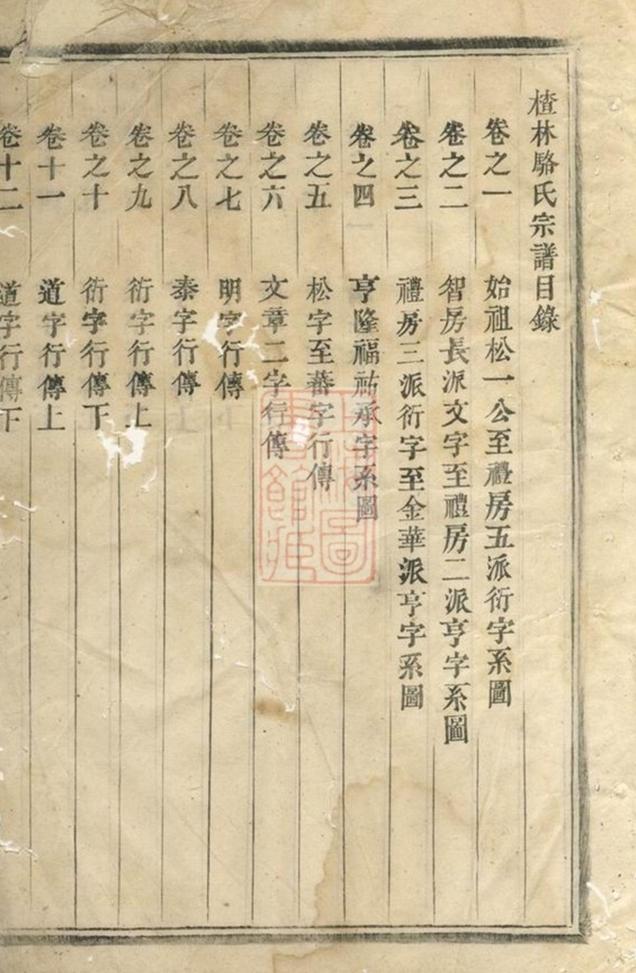 楂林駱氏宗譜目錄
卷之一 始祖松一公至禮房五派衍字系圖
卷之二 智房長派文字至禮房二派亨字系圖
卷之三 禮房三派衍字至金華派亨字系圖
卷之四 亨隆福祐承字系圖
卷之五 松字至蕃字行傳
卷之六 文章二字行傳
卷之七 明字行傳
卷之八 泰字行傳
卷之九 衍字行傳上
卷之十 衍字行傳下
卷十一 道字行傳上
卷十二 道字行傳下